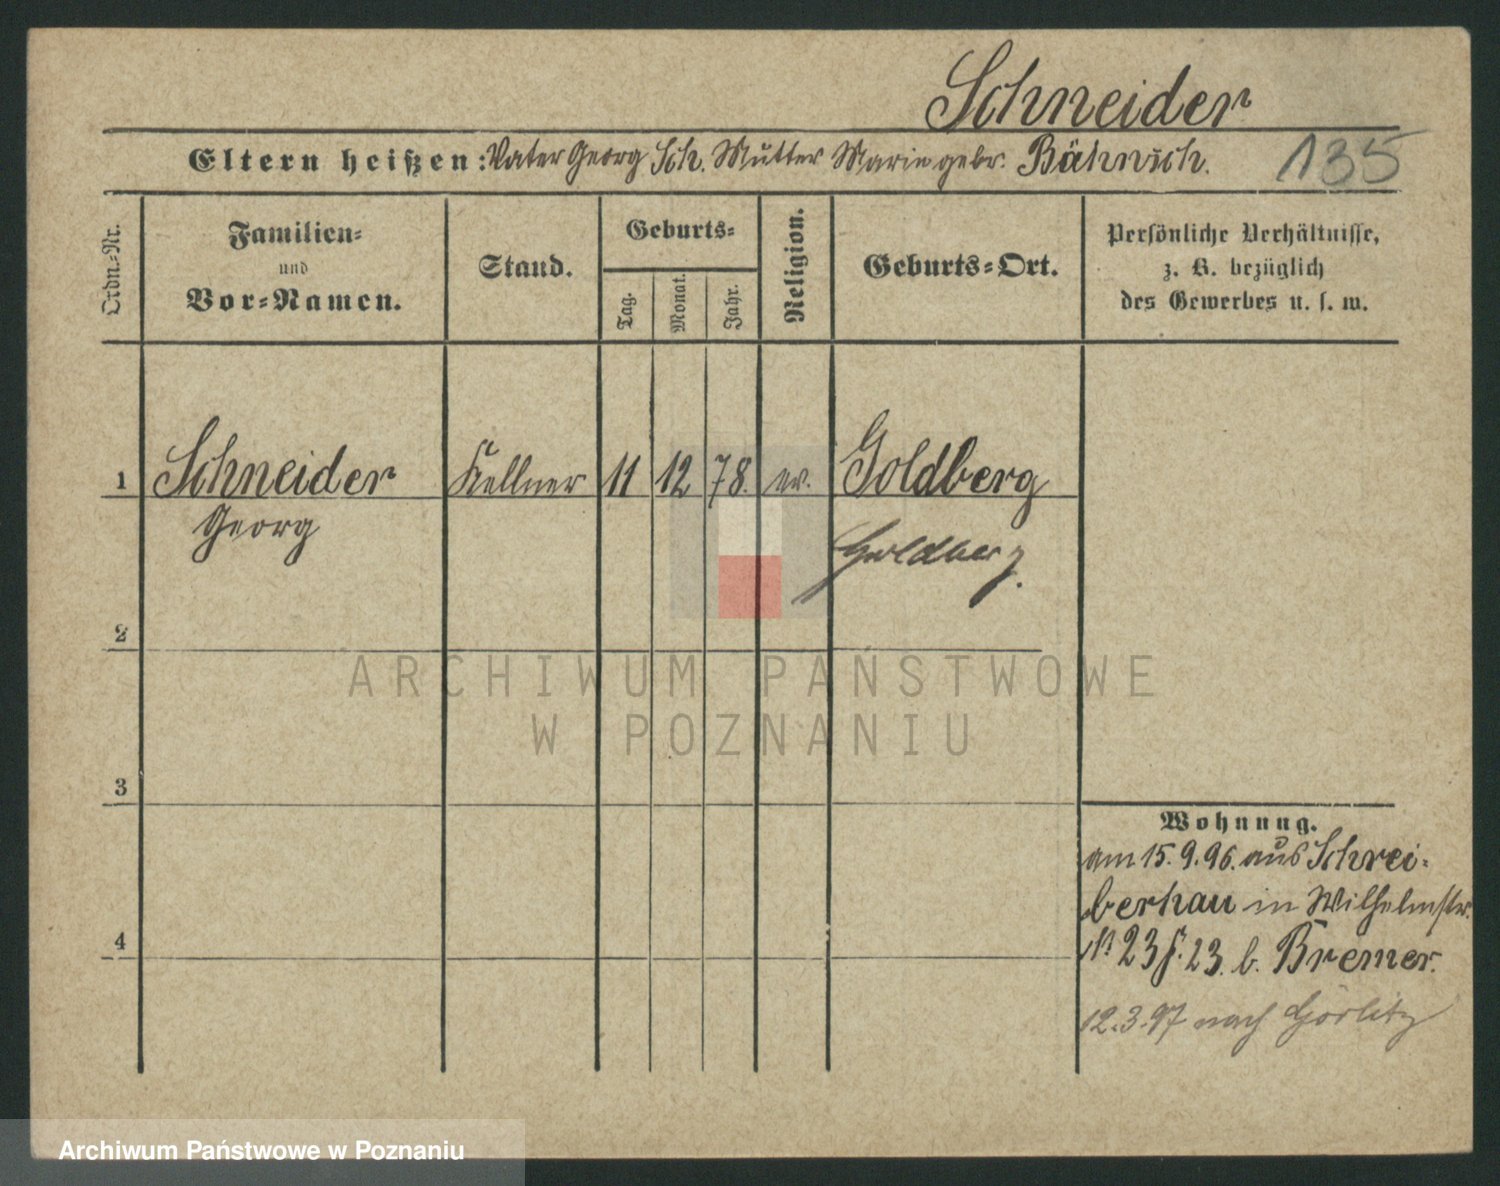 Schneider
Eltern heißen: Vater Georg Sch. Mutter Marie gebr. Bähnisch.
135
Ordn.-Nr.
Familien-
und
Vor-Namen.
Stand.
Geburts-
Tag.
Monat.
Jahr.
Religion.
Geburts-Ort.
Persönliche Verhältnisse,
z. B. bezüglich
des Gewerbes u. s. w.
1 Schneider Kellner 11 12 78. ev. Goldberg
Georg
Goldberg.
2
ARCHIWUM PAŃSTWOWE
W POZNANIU
3
Wohnung.
am 15.9.96. aus Schrei-
berhau in Wilhelmstr.
4
№ 23 23. b. Bremer.
12.3.97 nach Görlitz
Archiwum Państwowe w Poznaniu